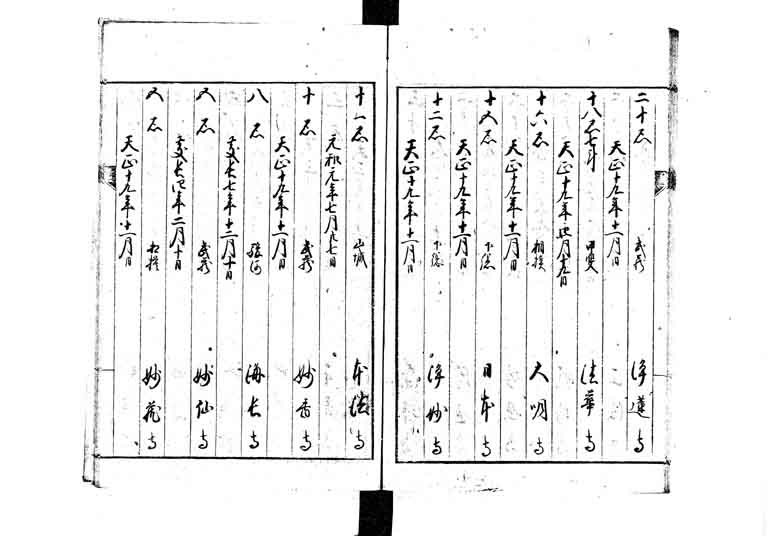 二十石 武蔵 浄蓮寺
天正十九年十一月日
十八石七斗 甲斐 法華寺
天正十九年四月十九日
十六石 相模 大明寺
天正十九年十一月日
十五石 下総 日本寺
天正十九年十一月日
十二石 下総 浄妙寺
天正十九年十一月日
十一石 山城 本法寺
元和元年七月廿七日
十石 武蔵 妙香寺
天正十九年十一月日
八石 駿河 海長寺
慶長七年十二月十日
五石 武蔵 妙仙寺
慶長四年二月十日
五石 相模 妙花寺
天正十九年十一月日